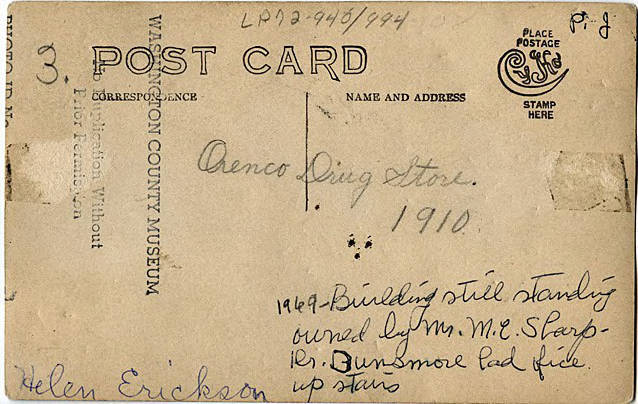 LP72-940/994
P. J
3.
POST CARD
PLACE
POSTAGE
Cyko
STAMP
HERE
CORRESPONDENCE
NAME AND ADDRESS
PHOTO ID No.
WASHINGTON COUNTY MUSEUM
No Duplication Without
Prior Permission
Orenco Drug Store.
1910
1969-Building still standing
owned by Mr. M.E. Sharp-
Dr. Dunsmore had fice
up stairs
Helen Erickson